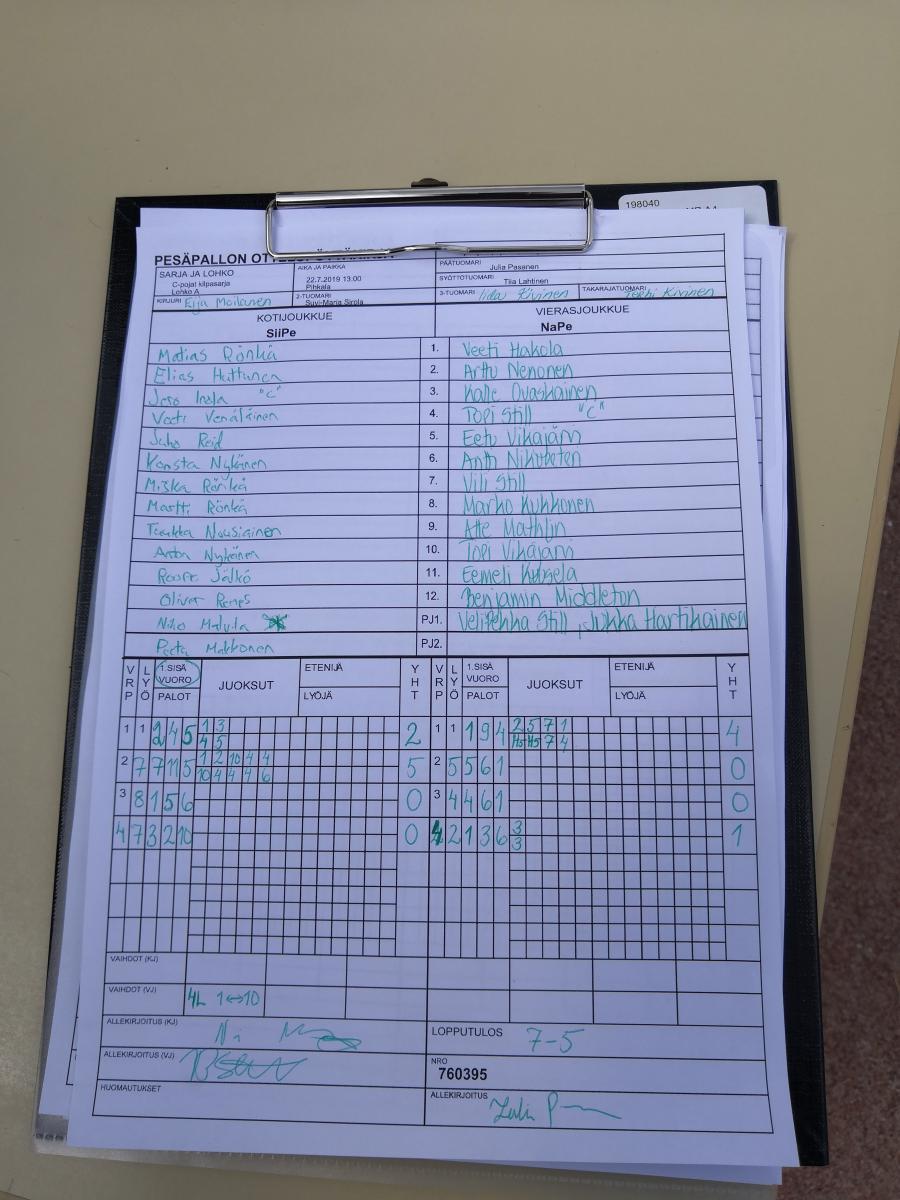 198040
PESÄPALLON
SARJA JA LOHKO
C-pojat kilpasarja
Lohko A
AIKA JA PAIKKA
22.7.2019 13.00
Pihkala
PÄÄTUOMARI
Julia Pasanen
SYÖTTÖTUOMARI
Tiia Lahtinen
KIRJURI Eija Moilanen
2-TUOMARI
Suvi-Maria Sirola
3-TUOMARI Iida Kivinen
TAKARAJATUOMARI Terhi Kivinen
KOTIJOUKKUE
SiiPe
VIERASJOUKKUE
NaPe
Matias Rönkä 1. Veeti Hakola
Elias Huttunen 2. Arttu Nenonen
"C" 3. Kalle Ovaskainen
Veeti Venäläinen 4. Topi Still "C"
Juho Reid 5. Eetu Vikajärvi
Konsta Nykänen 6. Antti
Miska Rönkä 7. Vili Still
Martti Rönkä 8. Marko Kukkonen
Nousiainen 9. Atte Mathlin
Anton Nykänen 10. Topi Vikajärvi
11. Eemeli
Oliver 12. Benjamin Middleton
Niko PJ1. Still, Jukka Hartikainen
Makkonen PJ2.
VRP LYÖ 1.SISÄ VUORO PALOT JUOKSUT ETENIJÄ LYÖJÄ YHT VRP LYÖ 1.SISÄ VUORO PALOT JUOKSUT ETENIJÄ LYÖJÄ YHT
1 1 2 4 5 1 3 2 1 1 1 9 4 2 5 7 1 4
4 5 H5 H5 7 4
2 7 7 11 5 1 2 10 4 4 5 2 5 5 6 1 0
10 4 4 4 6
3 8 1 5 6 0 3 4 4 6 1 0
4 7 3 2 10 0 4 2 1 3 6 3 1
3
VAIHDOT (KJ)
VAIHDOT (VJ) 4L 1↔10
ALLEKIRJOITUS (KJ)
LOPPUTULOS 7-5
ALLEKIRJOITUS (VJ)
NRO
760395
HUOMAUTUKSET
ALLEKIRJOITUS